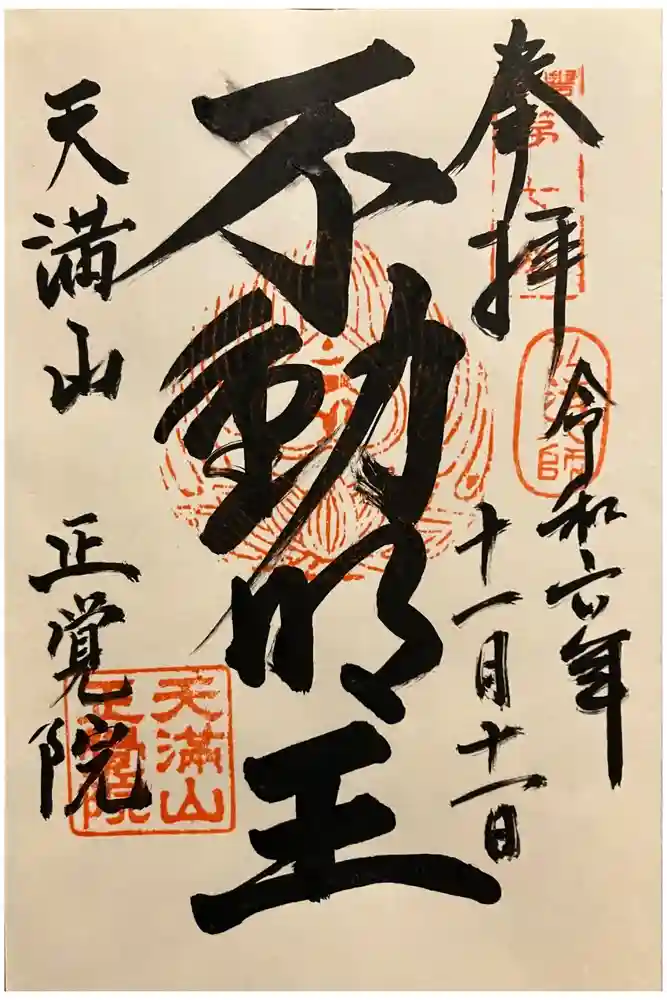 奉拝
弘法大師
令和六年
十一月十一日
不動明王
天満山
正覚院
天満山
正覺院